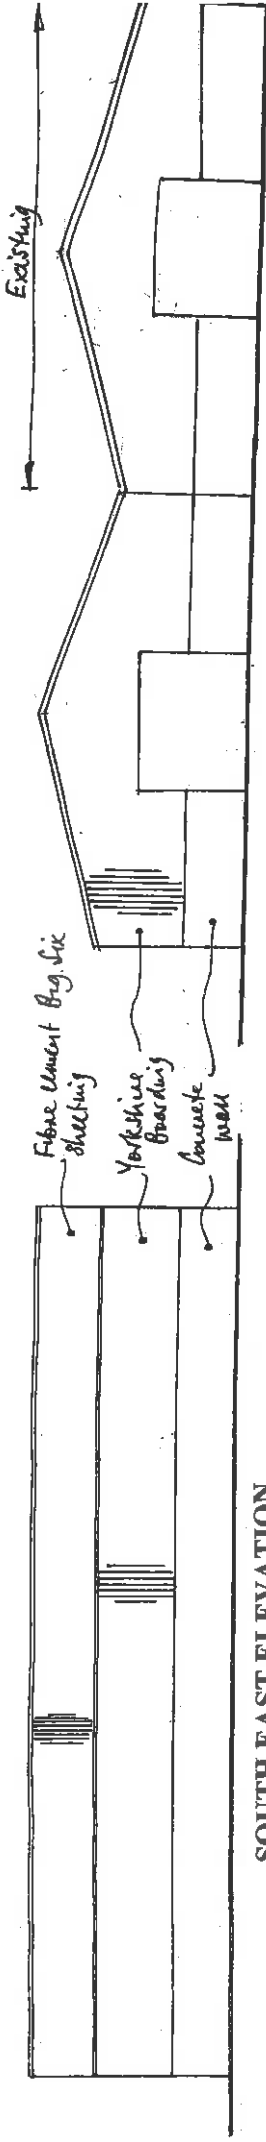 Existing
Fibre cement Big Six
Sheeting
Yorkshire
Boarding
Concrete
wall
SOUTH EAST ELEVATION